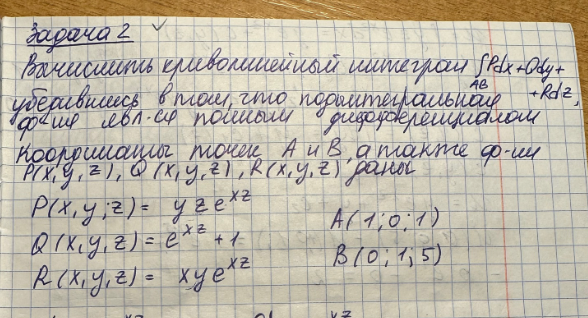 Задача 2
Вычислить криволинейный интеграл ∫Pdx+Qdy+
AB +Rdz,
убедившись в том, что подынтегральная
ф-ция явл-ся полным дифференциалом
Координаты точек A и B, а также ф-ии
P(x,y,z), Q(x,y,z), R(x,y,z) даны
P(x,y;z) = yze^{xz}
A(1;0;1)
Q(x,y,z) = e^{xz} + 1
B(0;1;5)
R(x,y,z) = xye^{xz}